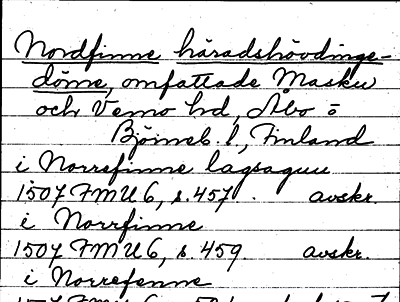 Nordfinne häradshövdinge-
döme, omfattade Masku
och Vemo hd, Åbo o
Björneb. l., Finland
i Norrefinne lagsaguu
1507 FMU 6, s. 457. avskr.
i Norrfinne
1507 FMU 6, s. 459. avskr.
i Norrefenne
1507 FMU 6, s.